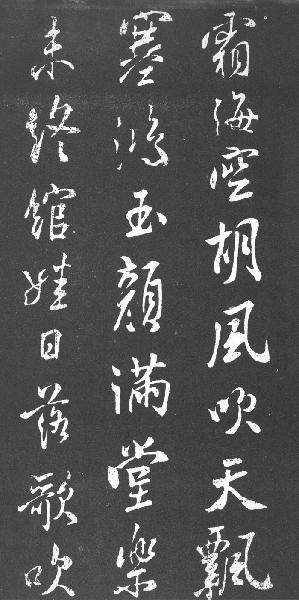 霜海空胡風吹天飄
塞鴻玉顏滿堂樂
未終館娃日落歌吹